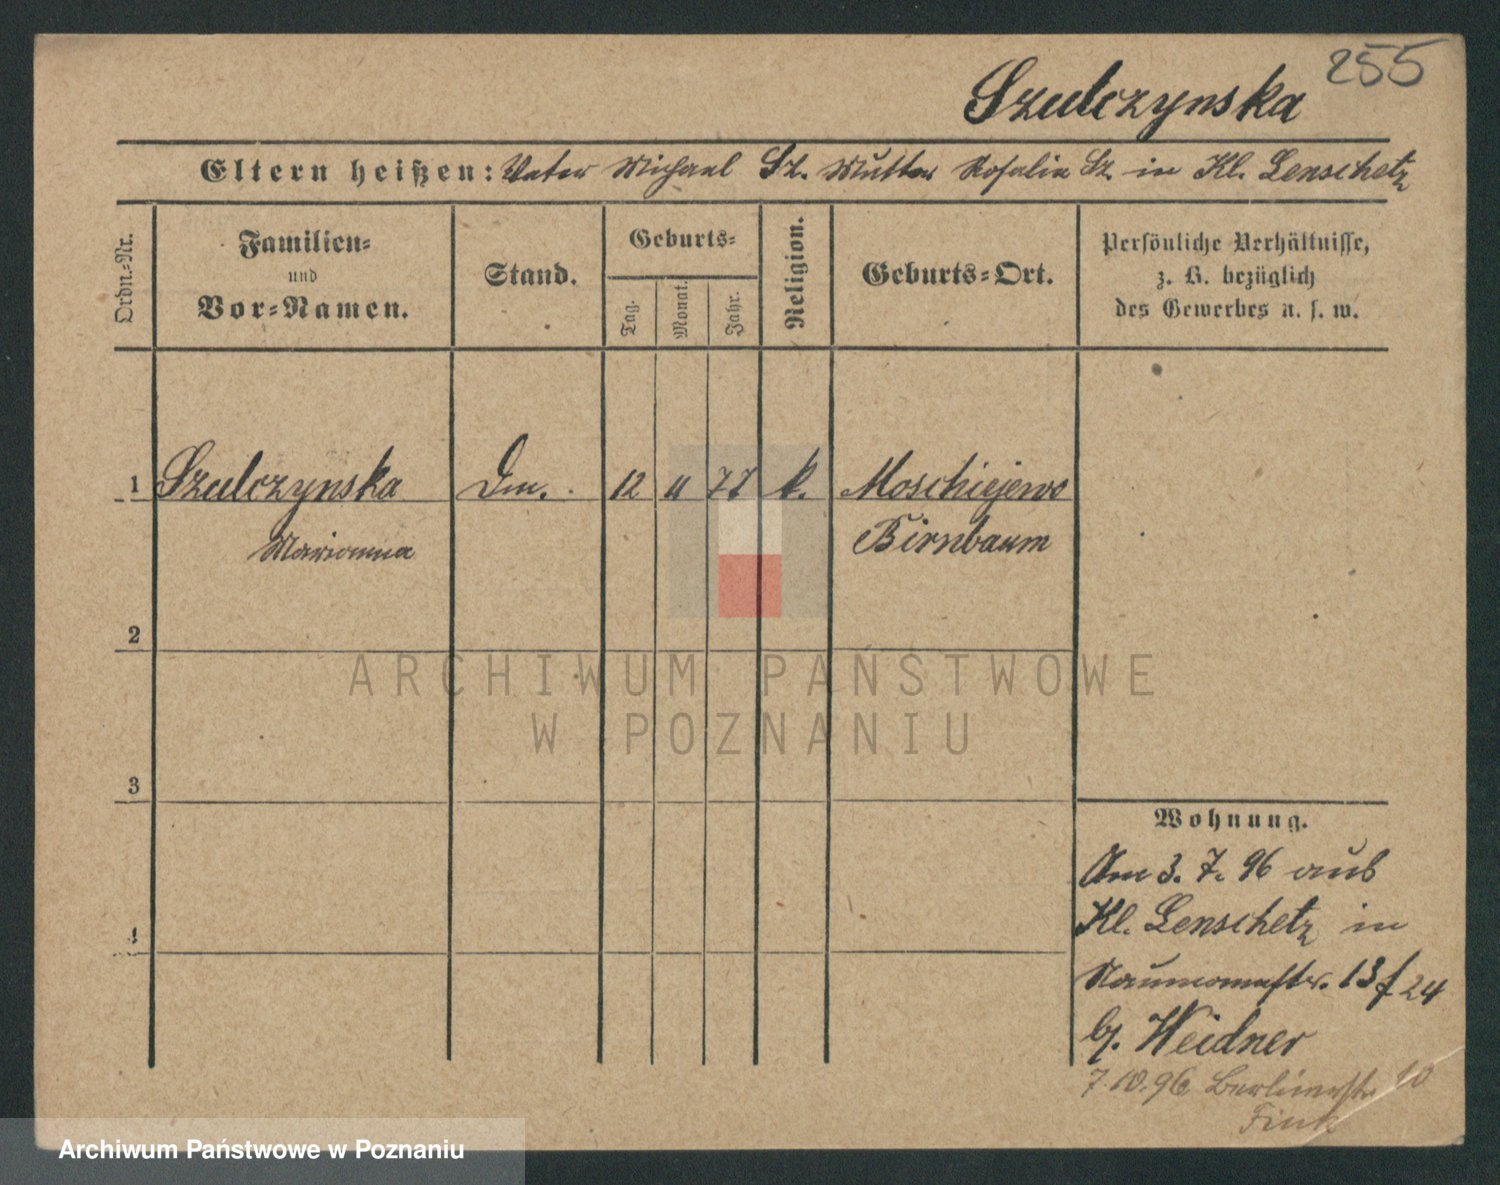 255
Szulczynska
Eltern heißen: Vater Michael Sz. Mutter Rosalia Sz. in Kl. Lenschetz
Ordn.-Nr.
Familien-
und
Vor-Namen.
Stand.
Geburts-
Tag.
Monat.
Jahr.
Religion.
Geburts-Ort.
Persönliche Verhältnisse,
z. B. bezüglich
des Gewerbes u. s. w.
1 Szulczynska Dm. 12 11 77 k. Moschiejewo
Marianna Birnbaum
2
3
4
Wohnung.
Am 3. 7. 96 aus
Kl. Lenschetz in
Naumannstr. 13 f 24
bj. Weidner
7.10.96 Berlinerstr 10
Fink
ARCHIWUM PAŃSTWOWE
W POZNANIU
Archiwum Państwowe w Poznaniu